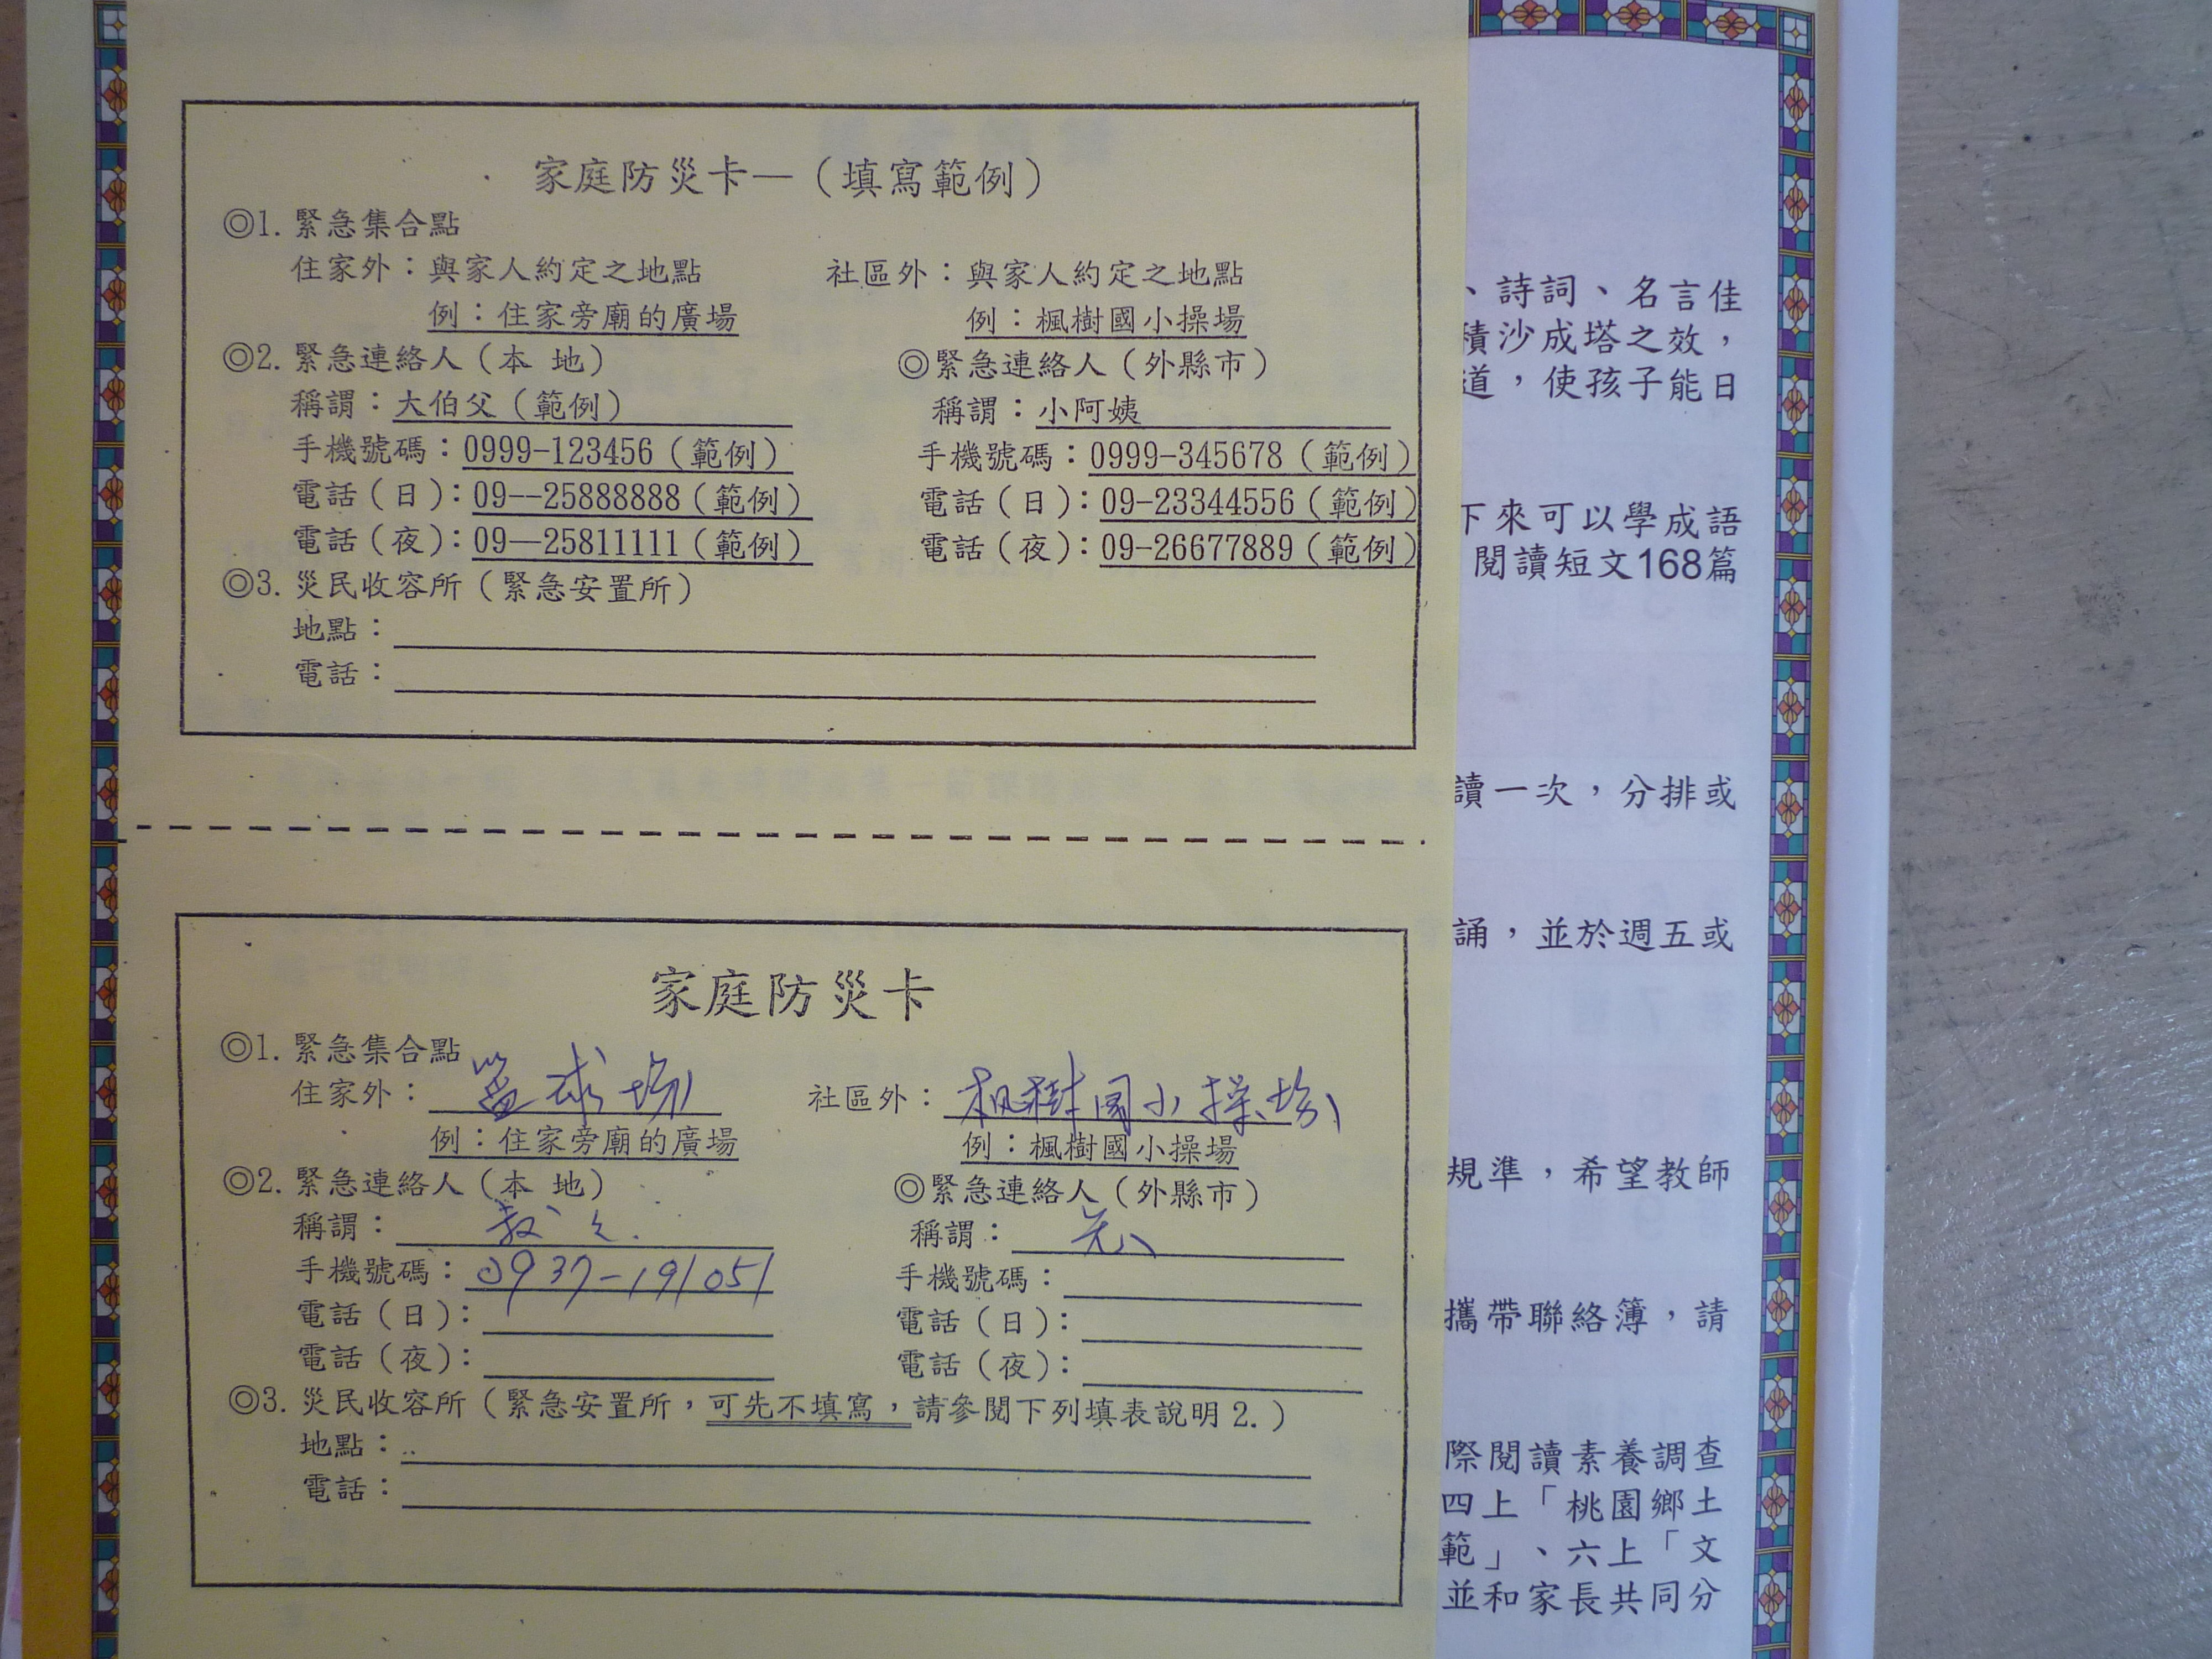 家庭防災卡—（填寫範例）
◎1. 緊急集合點
住家外：與家人約定之地點 社區外：與家人約定之地點
例：住家旁廟的廣場 例：楓樹國小操場
◎2. 緊急連絡人（本 地） ◎緊急連絡人（外縣市）
稱謂：大伯父（範例） 稱謂：小阿姨
手機號碼：0999-123456（範例） 手機號碼：0999-345678（範例）
電話（日）：09--25888888（範例） 電話（日）：09-23344556（範例）
電話（夜）：09—25811111（範例） 電話（夜）：09-26677889（範例）
◎3. 災民收容所（緊急安置所）
地點：
電話：
家庭防災卡
◎1. 緊急集合點
住家外：籃球場 社區外：楓樹國小操場
例：住家旁廟的廣場 例：楓樹國小操場
◎2. 緊急連絡人（本 地） ◎緊急連絡人（外縣市）
稱謂： 稱謂：無
手機號碼：0937-191051 手機號碼：
電話（日）： 電話（日）：
電話（夜）： 電話（夜）：
◎3. 災民收容所（緊急安置所，可先不填寫，請參閱下列填表說明 2.）
地點：
電話：
、詩詞、名言佳
積沙成塔之效，
道，使孩子能日
下來可以學成語
閱讀短文168篇
讀一次，分排或
誦，並於週五或
規準，希望教師
攜帶聯絡簿，請
際閱讀素養調查
四上「桃園鄉土
範」、六上「文
並和家長共同分